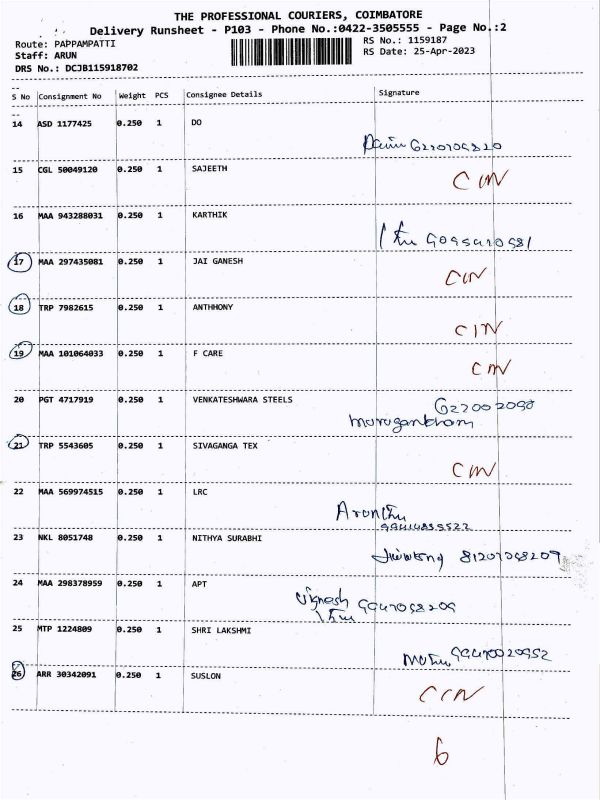 THE PROFESSIONAL COURIERS, COIMBATORE
Delivery Runsheet - P103 - Phone No.:0422-3505555 - Page No.:2
Route: PAPPAMPATTI
RS No.: 1159187
Staff: ARUN
RS Date: 25-Apr-2023
DRS No.: DCJB115918702
S No Consignment No Weight PCS Consignee Details Signature
14 ASD 1177425 0.250 1 DO
15 CGL 50049120 0.250 1 SAJEETH
CIN
16 MAA 943288031 0.250 1 KARTHIK
17 MAA 297435081 0.250 1 JAI GANESH
CIN
18 TRP 7982615 0.250 1 ANTHHONY
CIN
19 MAA 101064033 0.250 1 F CARE
CIN
20 PGT 4717919 0.250 1 VENKATESHWARA STEELS
21 TRP 5543605 0.250 1 SIVAGANGA TEX
CIN
22 MAA 569974515 0.250 1 LRC
23 NKL 8051748 0.250 1 NITHYA SURABHI
24 MAA 298378959 0.250 1 APT
Vignesh
25 MTP 1224809 0.250 1 SHRI LAKSHMI
26 ARR 30342091 0.250 1 SUSLON
CIN
6